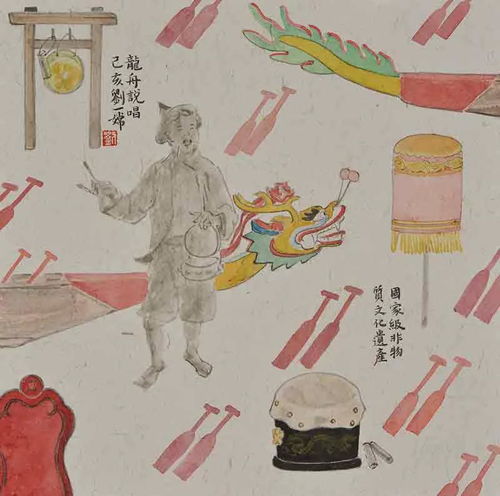 龍舟說唱
己亥劉一嫦
國家級非物
質文化遺產